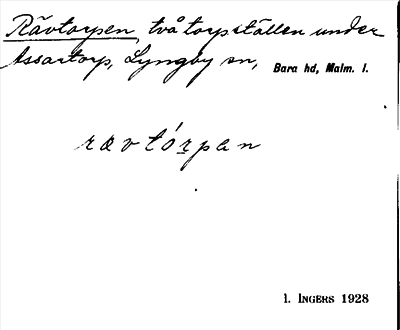 Rävtorpen, två torpställen under
Assartorp, Lyngby sn, Bara hd, Malm. l.
rævtórpan
I. INGERS 1928